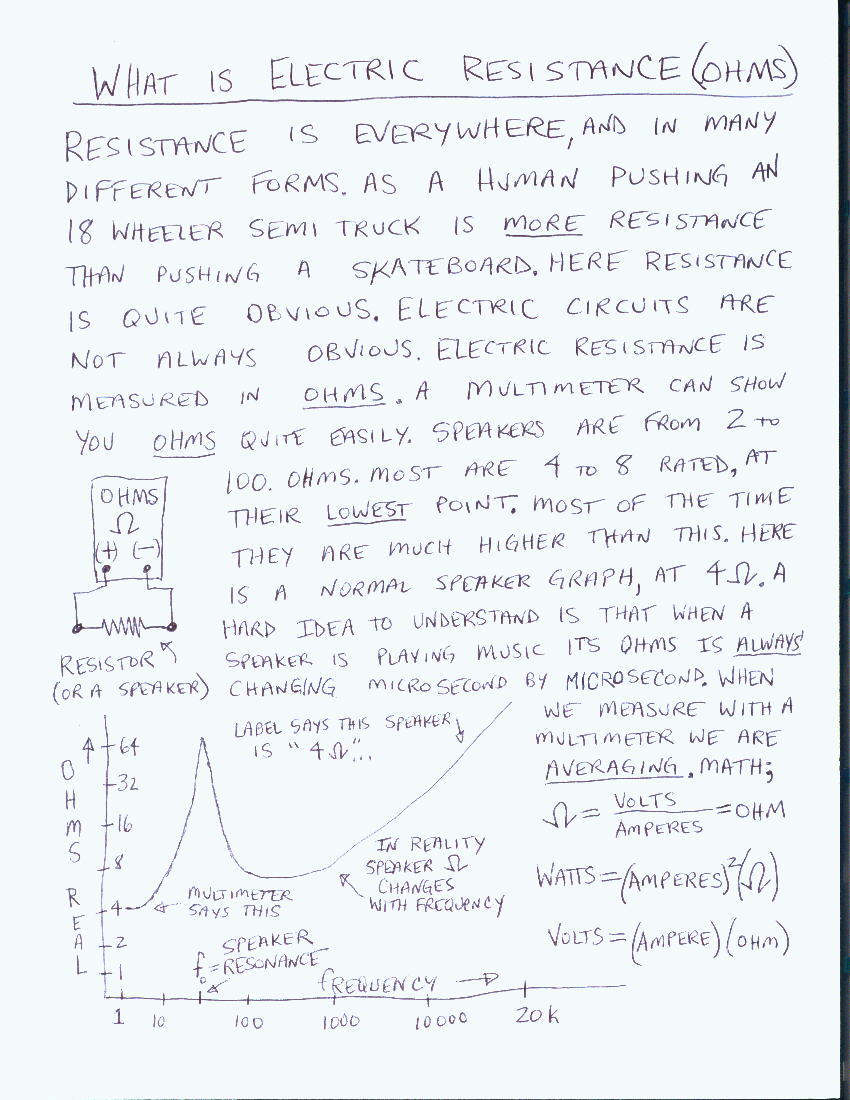 WHAT IS ELECTRIC RESISTANCE (OHMS)
RESISTANCE IS EVERYWHERE, AND IN MANY
DIFFERENT FORMS. AS A HUMAN PUSHING AN
18 WHEELER SEMI TRUCK IS MORE RESISTANCE
THAN PUSHING A SKATEBOARD. HERE RESISTANCE
IS QUITE OBVIOUS. ELECTRIC CIRCUITS ARE
NOT ALWAYS OBVIOUS. ELECTRIC RESISTANCE IS
MEASURED IN OHMS. A MULTIMETER CAN SHOW
YOU OHMS QUITE EASILY. SPEAKERS ARE FROM 2 TO
100. OHMS. MOST ARE 4 TO 8 RATED, AT
THEIR LOWEST POINT. MOST OF THE TIME
THEY ARE MUCH HIGHER THAN THIS. HERE
IS A NORMAL SPEAKER GRAPH, AT 4Ω. A
HARD IDEA TO UNDERSTAND IS THAT WHEN A
SPEAKER IS PLAYING MUSIC ITS OHMS IS ALWAYS
CHANGING MICROSECOND BY MICROSECOND. WHEN
WE MEASURE WITH A
MULTIMETER WE ARE
AVERAGING. MATH;
Ω = VOLTS / AMPERES = OHM
WATTS = (AMPERES)²(Ω)
VOLTS = (AMPERE)(OHM)
OHMS
Ω
(+) (-)
RESISTOR
(OR A SPEAKER)
LABEL SAYS THIS SPEAKER
IS "4Ω"...
OHMS REAL
64
32
16
8
4
2
1
IN REALITY
SPEAKER Ω
CHANGES
WITH FREQUENCY
MULTIMETER
SAYS THIS
SPEAKER
f₀ = RESONANCE
FREQUENCY
1 10 100 1000 10000 20K